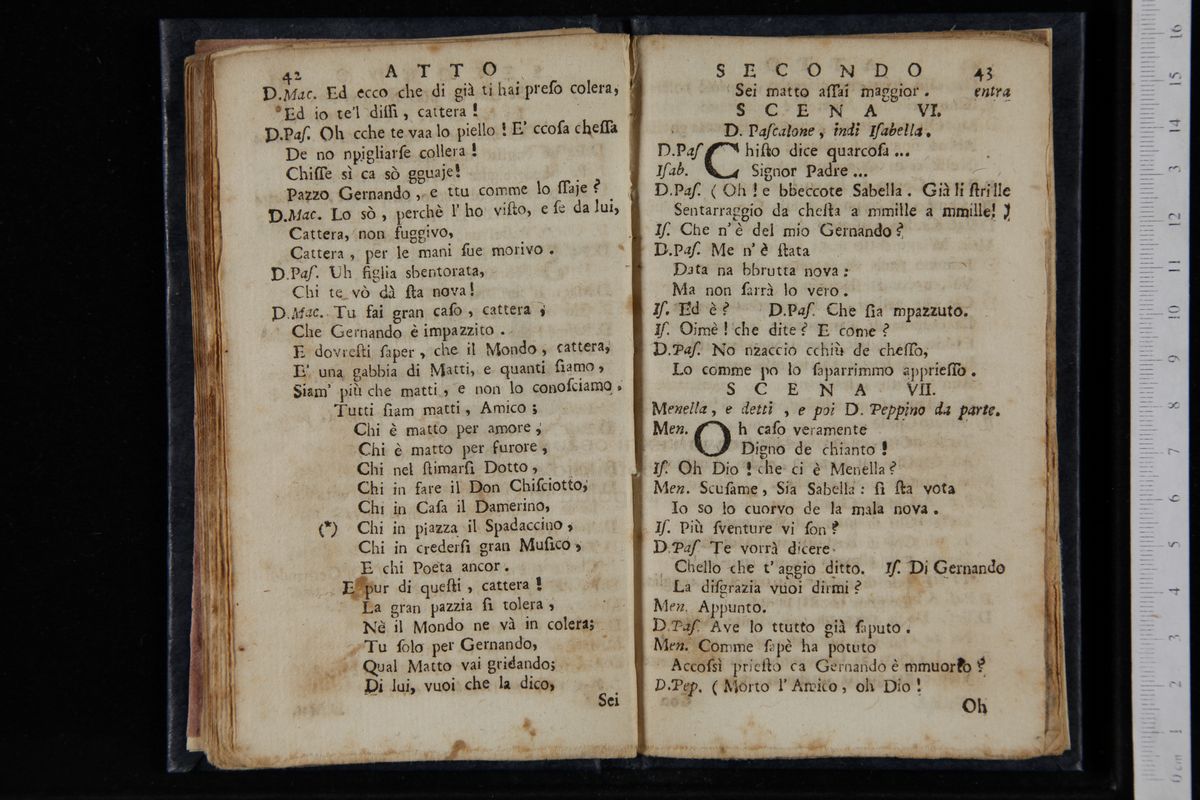 42 ATTO
D.Mac. Ed ecco che di già ti hai preſo colera,
Ed io te'l diſſi, cattera!
D.Paſ. Oh cche te vaa lo piello! E' ccoſa cheſſa
De no npigliarſe collera!
Chiſſe sì ca sò gguaje!
Pazzo Gernando, e ttu comme lo ſſaje?
D.Mac. Lo sò, perchè l'ho viſto, e ſe da lui,
Cattera, non fuggivo,
Cattera, per le mani ſue morivo.
D.Paſ. Uh figlia sbentorata,
Chi te vò dà ſta nova!
D.Mac. Tu fai gran caſo, cattera;
Che Gernando è impazzito.
E dovreſti ſaper, che il Mondo, cattera,
E' una gabbia di Matti, e quanti ſiamo,
Siam' più che matti, e non lo conoſciamo.
Tutti ſiam matti, Amico;
Chi è matto per amore,
Chi è matto per furore,
Chi nel ſtimarſi Dotto,
Chi in fare il Don Chiſciotto,
Chi in Caſa il Damerino,
(*) Chi in piazza il Spadaccino,
Chi in crederſi gran Muſico,
E chi Poeta ancor.
E pur di queſti, cattera!
La gran pazzia ſi tolera,
Nè il Mondo ne và in colera;
Tu ſolo per Gernando,
Qual Matto vai gridando;
Di lui, vuoi che la dico,
Sei
SECONDO 43
Sei matto aſſai maggior. entra
SCENA VI.
D. Paſcalone, indi Iſabella.
D.Paſ Chiſto dice quarcoſa...
Iſab. Signor Padre...
D.Paſ. (Oh! e bbeccote Sabella. Già li ſtrille
Sentarraggio da cheſta a mmille a mmille!)
Iſ. Che n'è del mio Gernando?
D.Paſ. Me n'è ſtata
Data na bbrutta nova:
Ma non ſarrà lo vero.
Iſ. Ed è? D.Paſ. Che ſia mpazzuto.
Iſ. Oimè! che dite? E come?
D.Paſ. No nzaccio cchiù de cheſſo,
Lo comme po lo ſaparrimmo apprieſſo.
SCENA VII.
Menella, e detti, e poi D. Peppino da parte.
Men. Oh caſo veramente
Digno de chianto!
Iſ. Oh Dio! che ci è Menella?
Men. Scuſame, Sia Sabella: ſi ſta vota
Io so lo cuorvo de la mala nova.
Iſ. Più ſventure vi ſon?
D.Paſ Te vorrà dicere
Chello che t'aggio ditto. Iſ. Di Gernando
La diſgrazia vuoi dirmi?
Men. Appunto.
D.Paſ. Ave lo ttutto già ſaputo.
Men. Comme ſapè ha potuto
Accoſsì prieſto ca Gernando è mmuorto?
D.Pep. (Morto l'Amico, oh Dio!
Oh
16
15
14
13
12
11
10
9
8
7
6
5
4
3
2
1
0 cm